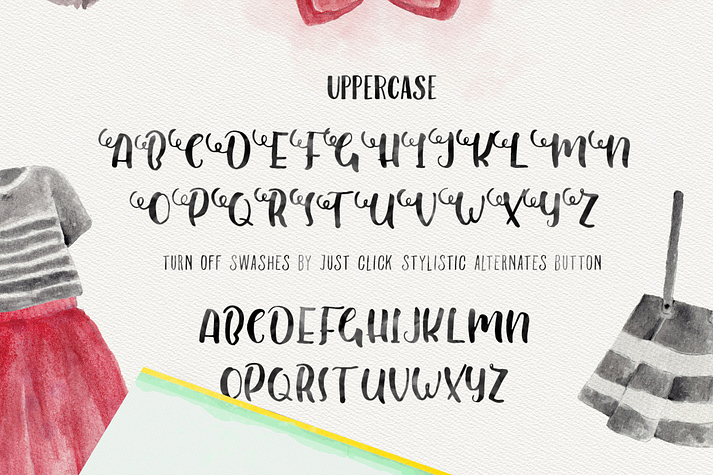 UPPERCASE
ABCDEFGHIJKLMN
OPQRSTUVWXYZ
TURN OFF SWASHES BY JUST CLICK STYLISTIC ALTERNATES BUTTON
ABCDEFGHIJKLMN
OPQRSTUVWXYZ